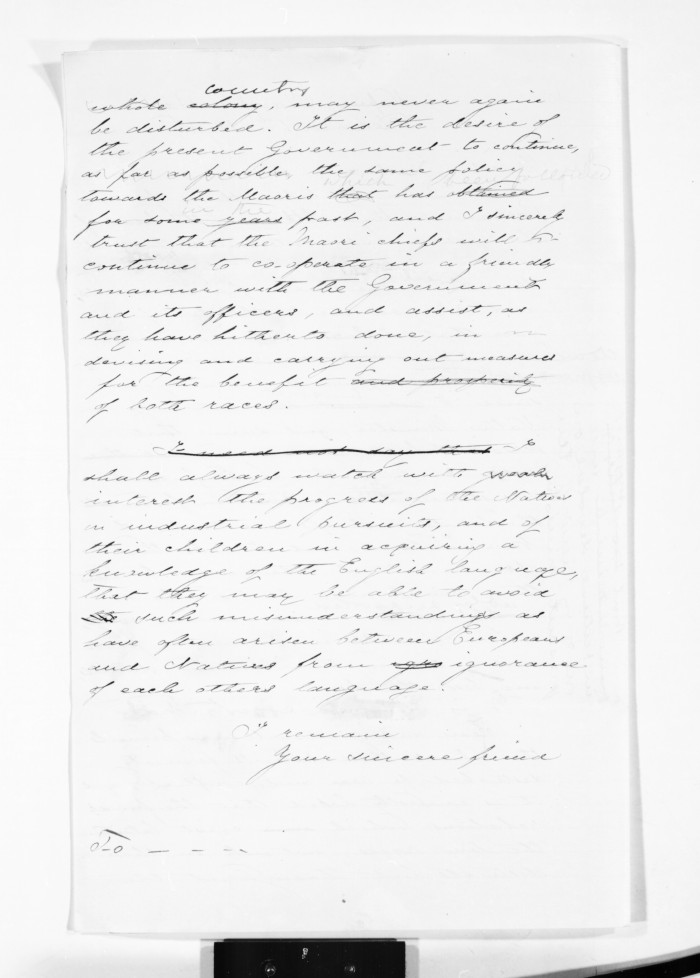 country
whole colony, may never again
be disturbed. It is the desire of
the present Government to continue,
as far as possible, the same policy
which been followed
towards the Maoris that has obtained
in the
for some years past, and I sincerely
trust that the Maori chiefs will
continue to co-operate in a friendly
manner with the Government
and its officers, and assist, as
they have hitherto done, in
devising and carrying out measures
for the benefit and prosperity
of both races.
I need not say that I
shall always watch with great
interest the progress of the Natives
in industrial pursuits, and of
their children in acquiring a
knowledge of the English language,
that they may be able to avoid
such misunderstandings as
have often arisen between Europeans
and Natives from ignorance
of each others language.
I remain
Your sincere friend
To — — — —